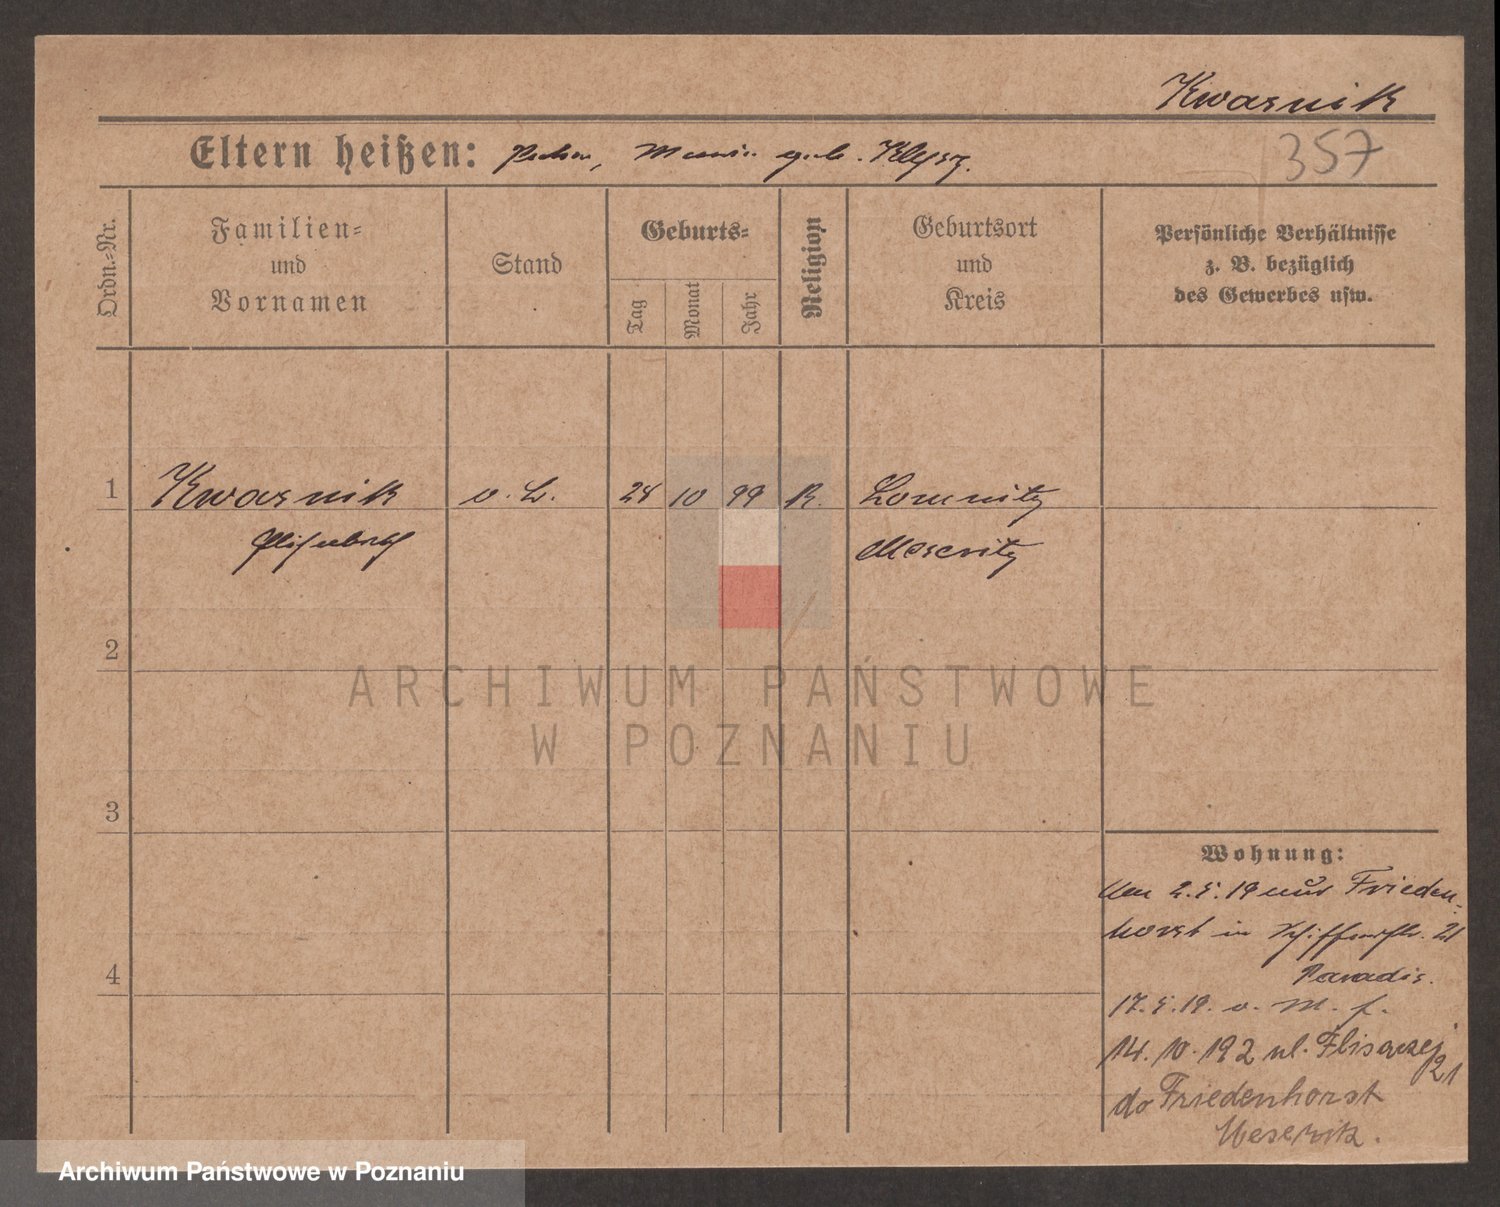 Kwasnik
Eltern heißen: geb.
357
Ordn.-Nr.
Familien-
und
Vornamen
Stand
Geburts-
Tag
Monat
Jahr
Religion
Geburtsort
und
Kreis
Persönliche Verhältnisse
z. B. bezüglich
des Gewerbes usw.
1 Kwasnik o. L. 24 10 99 R. Lomnitz
Meseritz
2
3
4
Wohnung:
2.5.19 aus Frieden-
horst in 21
Paradis.
17.5.19. v. M. f.
14.10.192 ul. Flisaczej
21
do Friedenhorst
Meseritz.
ARCHIWUM PAŃSTWOWE
W POZNANIU
Archiwum Państwowe w Poznaniu